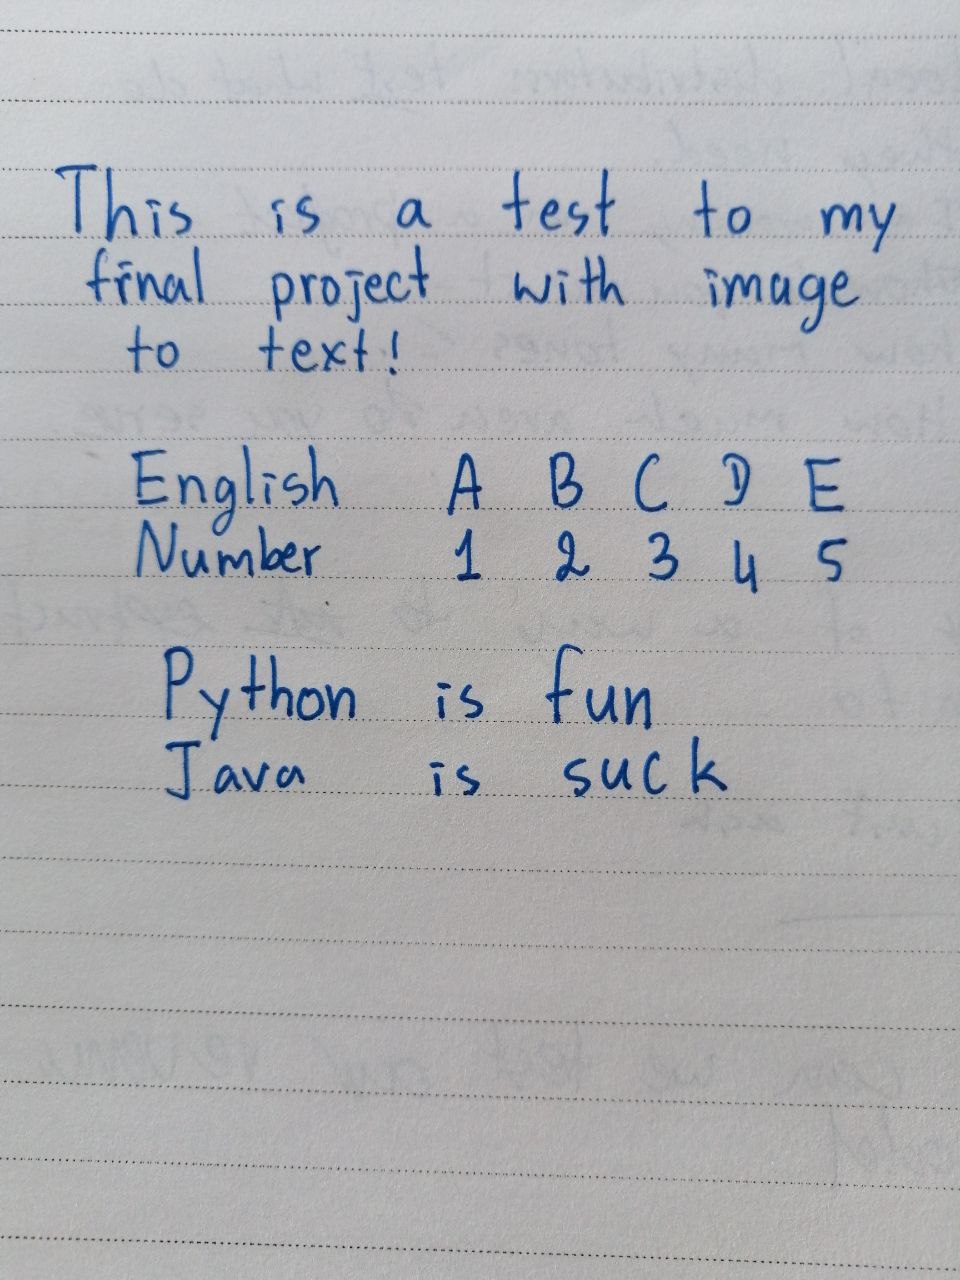 This is a test to my
final project with image
to text!
English A B C D E
Number 1 2 3 4 5
Python is fun
Java is suck